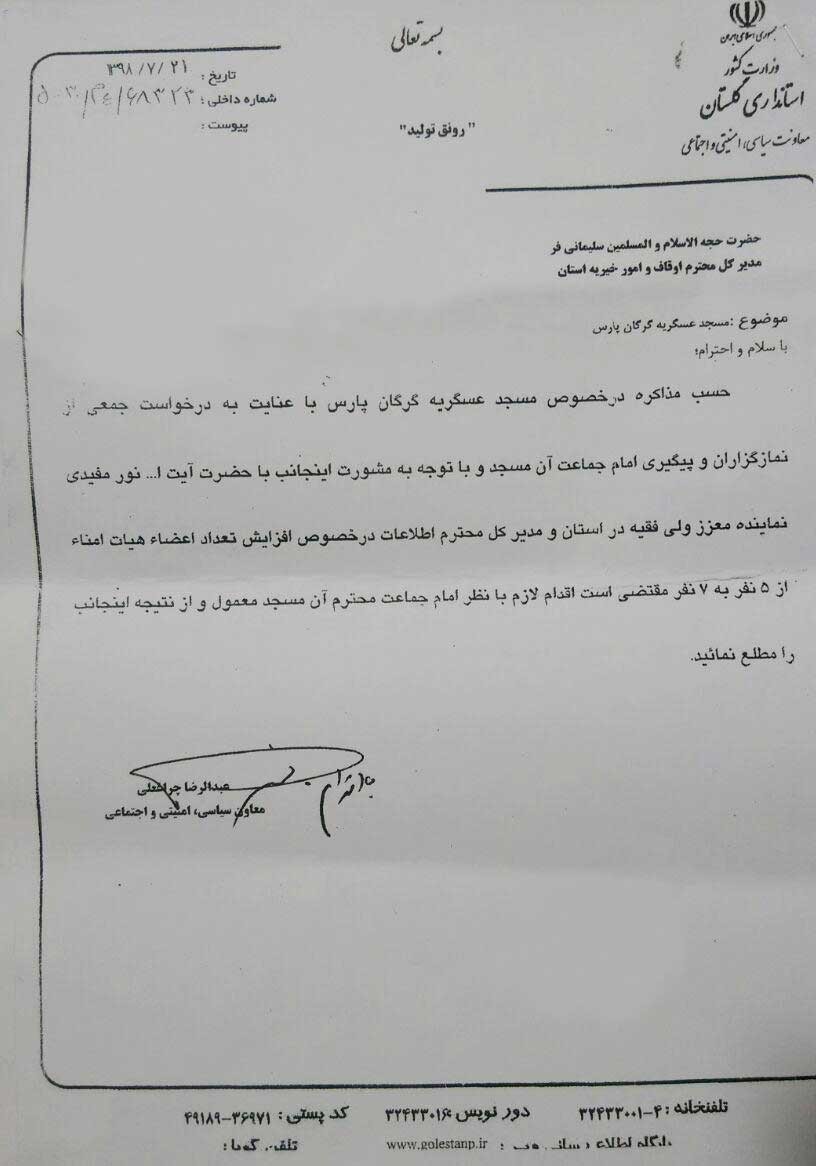 بسمه تعالی
جمهوری اسلامی ایران
وزارت کشور
استانداری گلستان
معاونت سیاسی، امنیتی و اجتماعی
تاریخ : ۱۳۹۸/۷/۲۱
شماره داخلی :
پیوست :
"رونق تولید"
حضرت حجه الاسلام و المسلمین سلیمانی فر
مدیر کل محترم اوقاف و امور خیریه استان
موضوع :مسجد عسگریه گرگان پارس
با سلام و احترام؛
حسب مذاکره درخصوص مسجد عسگریه گرگان پارس با عنایت به درخواست جمعی از
نمازگزاران و پیگیری امام جماعت آن مسجد و با توجه به مشورت اینجانب با حضرت آیت ا... نور مفیدی
نماینده معزز ولی فقیه در استان و مدیر کل محترم اطلاعات درخصوص افزایش تعداد اعضاء هیات امناء
از ۵ نفر به ۷ نفر مقتضی است اقدام لازم با نظر امام جماعت محترم آن مسجد معمول و از نتیجه اینجانب
را مطلع نمائید.
عبدالرضا چراغعلی
معاون سیاسی، امنیتی و اجتماعی
تلفنخانه : ۴-۳۲۴۳۳۰۰۱ دور نویس : ۳۲۴۳۳۰۱۶ کد پستی : ۳۶۹۷۱-۴۹۱۸۹
پایگاه اطلاع رسانی وب : www.golestanp.ir تلفن گویا :